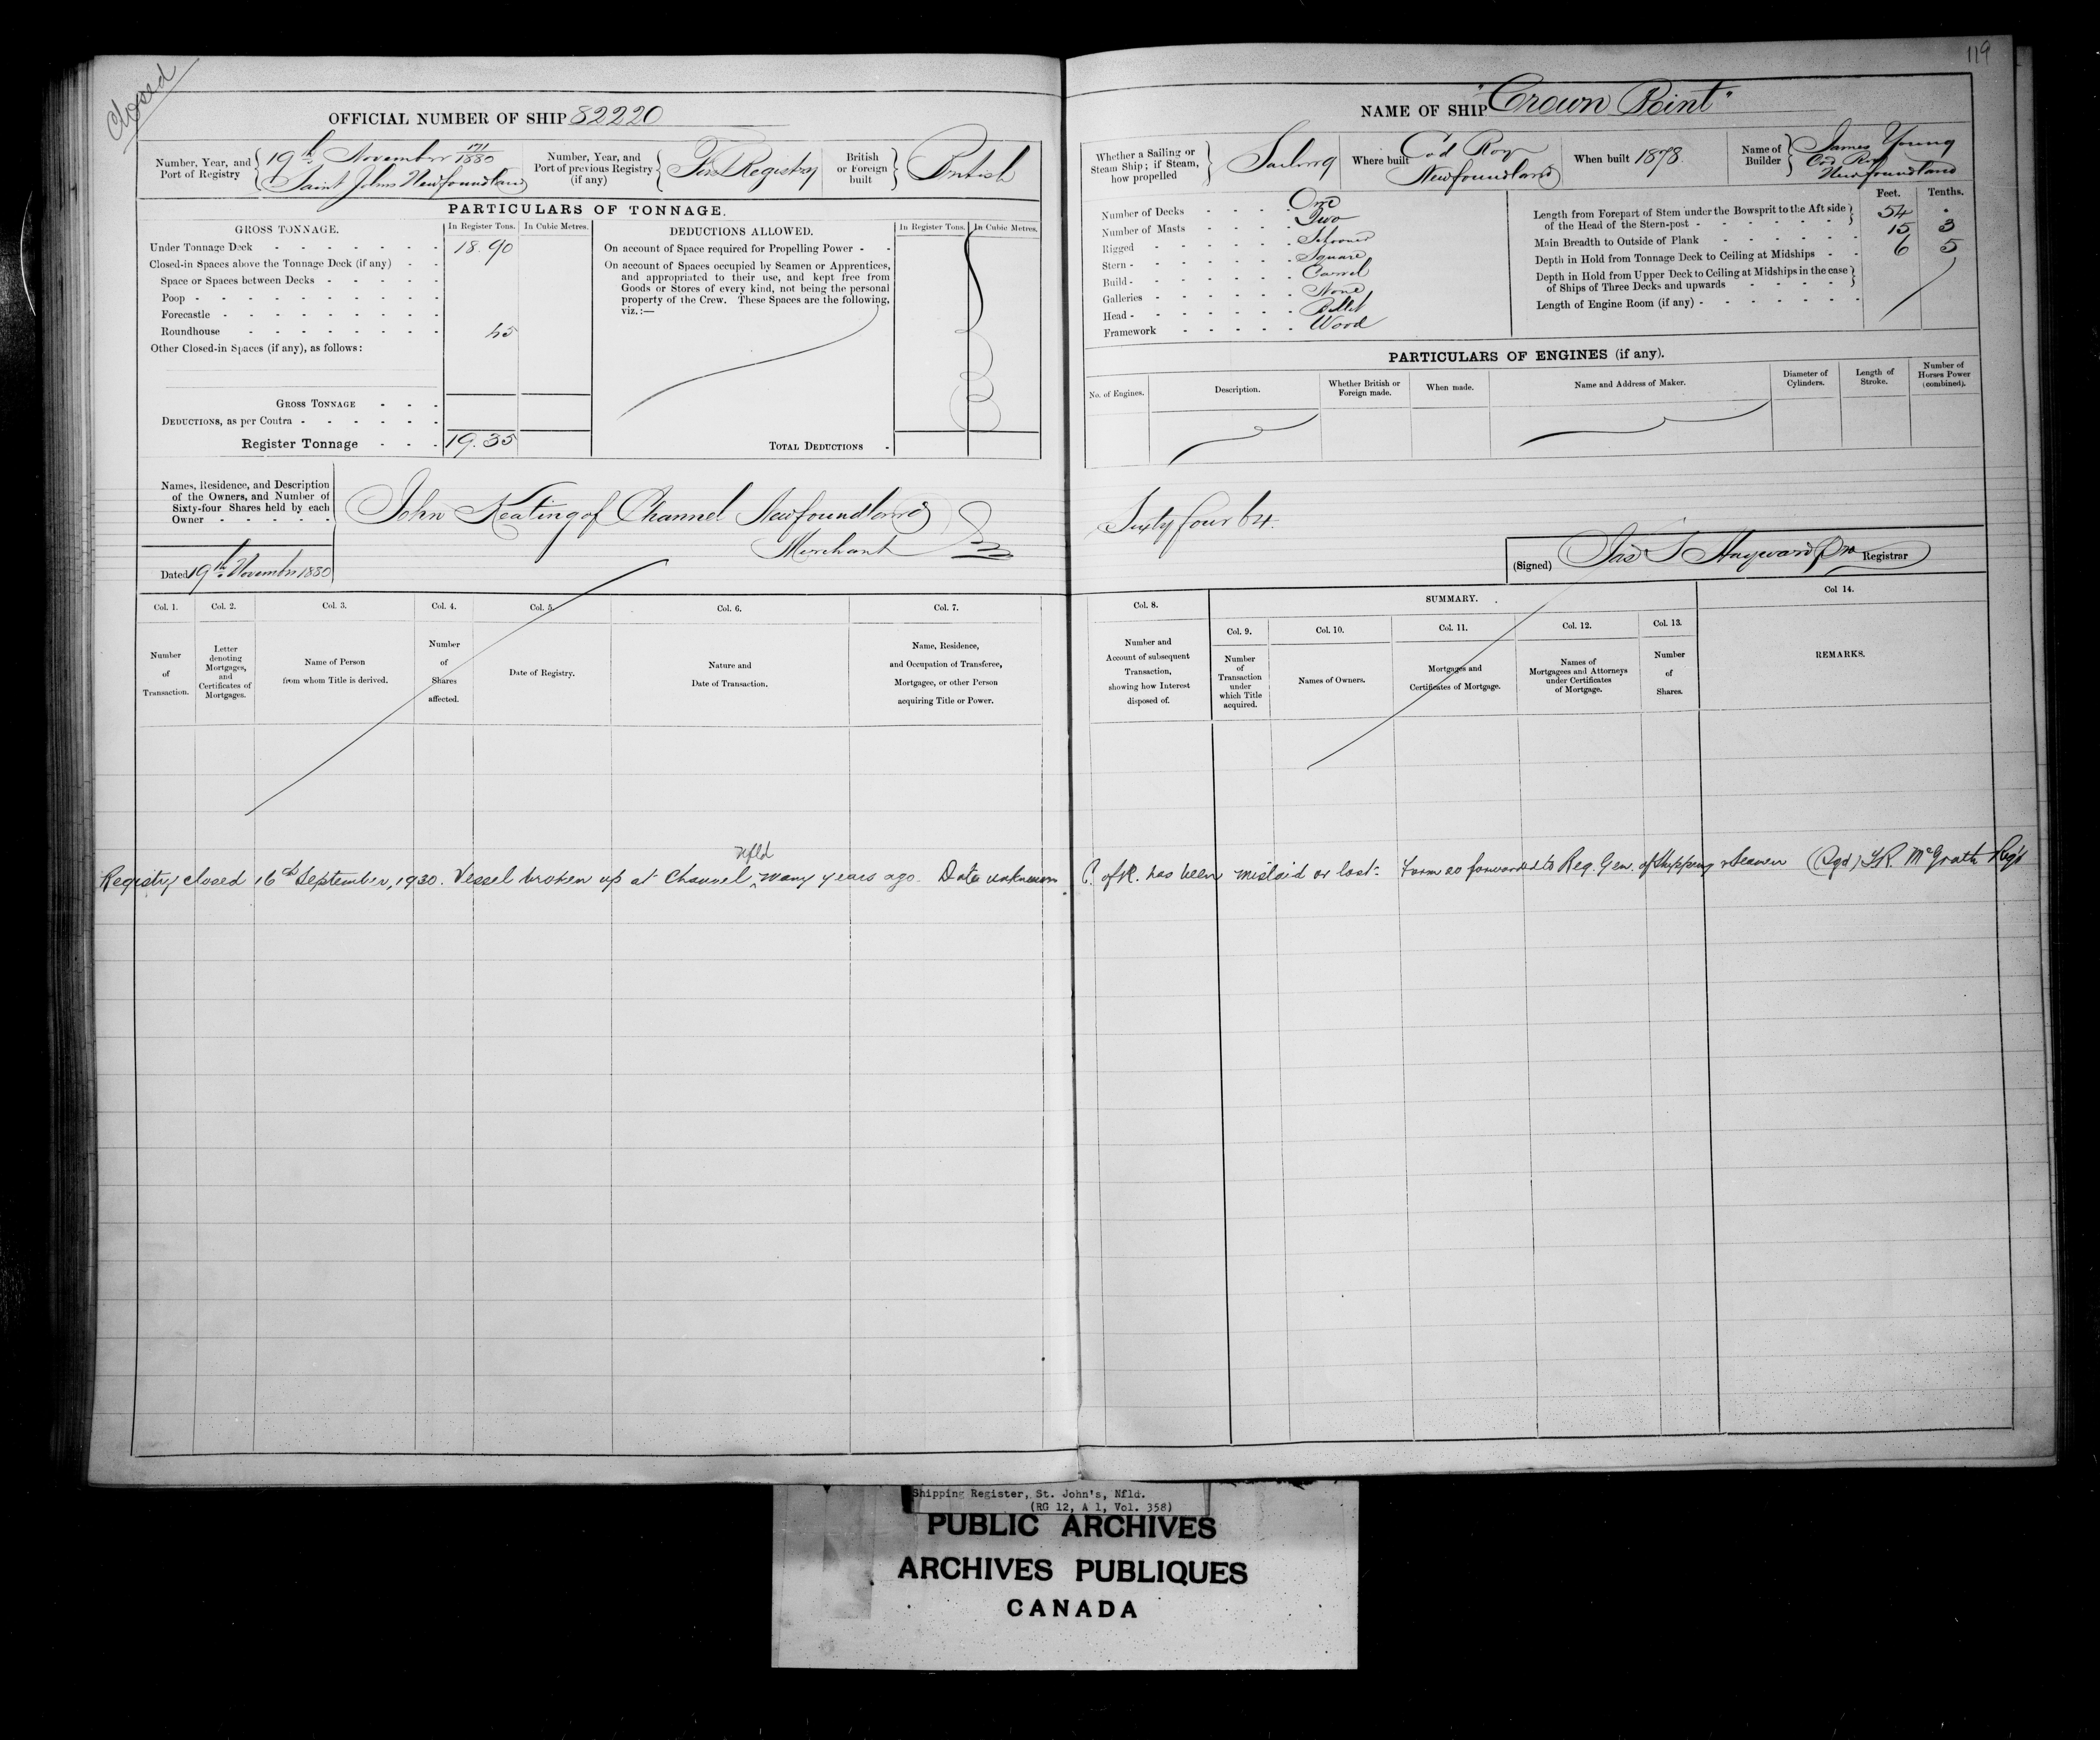 Closed
119
OFFICIAL NUMBER OF SHIP 82220
NAME OF SHIP "Crown Point"
Number, Year, and Port of Registry
19th November 1880
Saint Johns Newfoundland
Number, Year, and Port of previous Registry (if any)
First Registry
British or Foreign built
British
Whether a Sailing or Steam Ship; if Steam, how propelled
Sailing
Where built
Cod Roy
Newfoundland
When built 1878
Name of Builder
James Young
Cod Roy
Newfoundland
PARTICULARS OF TONNAGE.
GROSS TONNAGE.
In Register Tons.
In Cubic Metres.
Under Tonnage Deck 18.90
Closed-in Spaces above the Tonnage Deck (if any)
Space or Spaces between Decks
Poop
Forecastle
Roundhouse 45
Other Closed-in Spaces (if any), as follows:
GROSS TONNAGE
DEDUCTIONS, as per Contra
Register Tonnage 19.35
DEDUCTIONS ALLOWED.
In Register Tons.
In Cubic Metres.
On account of Space required for Propelling Power
On account of Spaces occupied by Seamen or Apprentices,
and appropriated to their use, and kept free from
Goods or Stores of every kind, not being the personal
property of the Crew. These Spaces are the following,
viz.:—
TOTAL DEDUCTIONS
Number of Decks One
Number of Masts Two
Rigged Schooner
Stern Square
Build Carvel
Galleries None
Head Billet
Framework Wood
Feet. Tenths.
Length from Forepart of Stem under the Bowsprit to the Aft side
of the Head of the Stern-post 54 .
Main Breadth to Outside of Plank 15 3
Depth in Hold from Tonnage Deck to Ceiling at Midships 6 5
Depth in Hold from Upper Deck to Ceiling at Midships in the case
of Ships of Three Decks and upwards
Length of Engine Room (if any)
PARTICULARS OF ENGINES (if any).
No. of Engines.
Description.
Whether British or Foreign made.
When made.
Name and Address of Maker.
Diameter of Cylinders.
Length of Stroke.
Number of Horses Power (combined).
Names, Residence, and Description
of the Owners, and Number of
Sixty-four Shares held by each
Owner
John Keating of Channel Newfoundland
Merchant
Sixty four 64
Dated 19th November 1880
(Signed) Jas S Hayward Registrar
Col. 1.
Number of Transaction.
Col. 2.
Letter denoting Mortgages, and Certificates of Mortgages.
Col. 3.
Name of Person from whom Title is derived.
Col. 4.
Number of Shares affected.
Col. 5.
Date of Registry.
Col. 6.
Nature and Date of Transaction.
Col. 7.
Name, Residence, and Occupation of Transferee, Mortgagee, or other Person acquiring Title or Power.
Col. 8.
Number and Account of subsequent Transaction, showing how Interest disposed of.
SUMMARY.
Col. 9.
Number of Transaction under which Title acquired.
Col. 10.
Names of Owners.
Col. 11.
Mortgages and Certificates of Mortgage.
Col. 12.
Names of Mortgagees and Attorneys under Certificates of Mortgage.
Col. 13.
Number of Shares.
Col 14.
REMARKS.
Nfld
Registry closed 16th September, 1930. Vessel broken up at Channel ^ many years ago. Date unknown. C. of R. has been mislaid or lost. Form 20 forwarded to Reg. Gen. of Shipping & Seamen (Sgd) McGrath Reg'r
Shipping Register, St. John's, Nfld.
(RG 12, A 1, Vol. 358)
PUBLIC ARCHIVES
ARCHIVES PUBLIQUES
CANADA